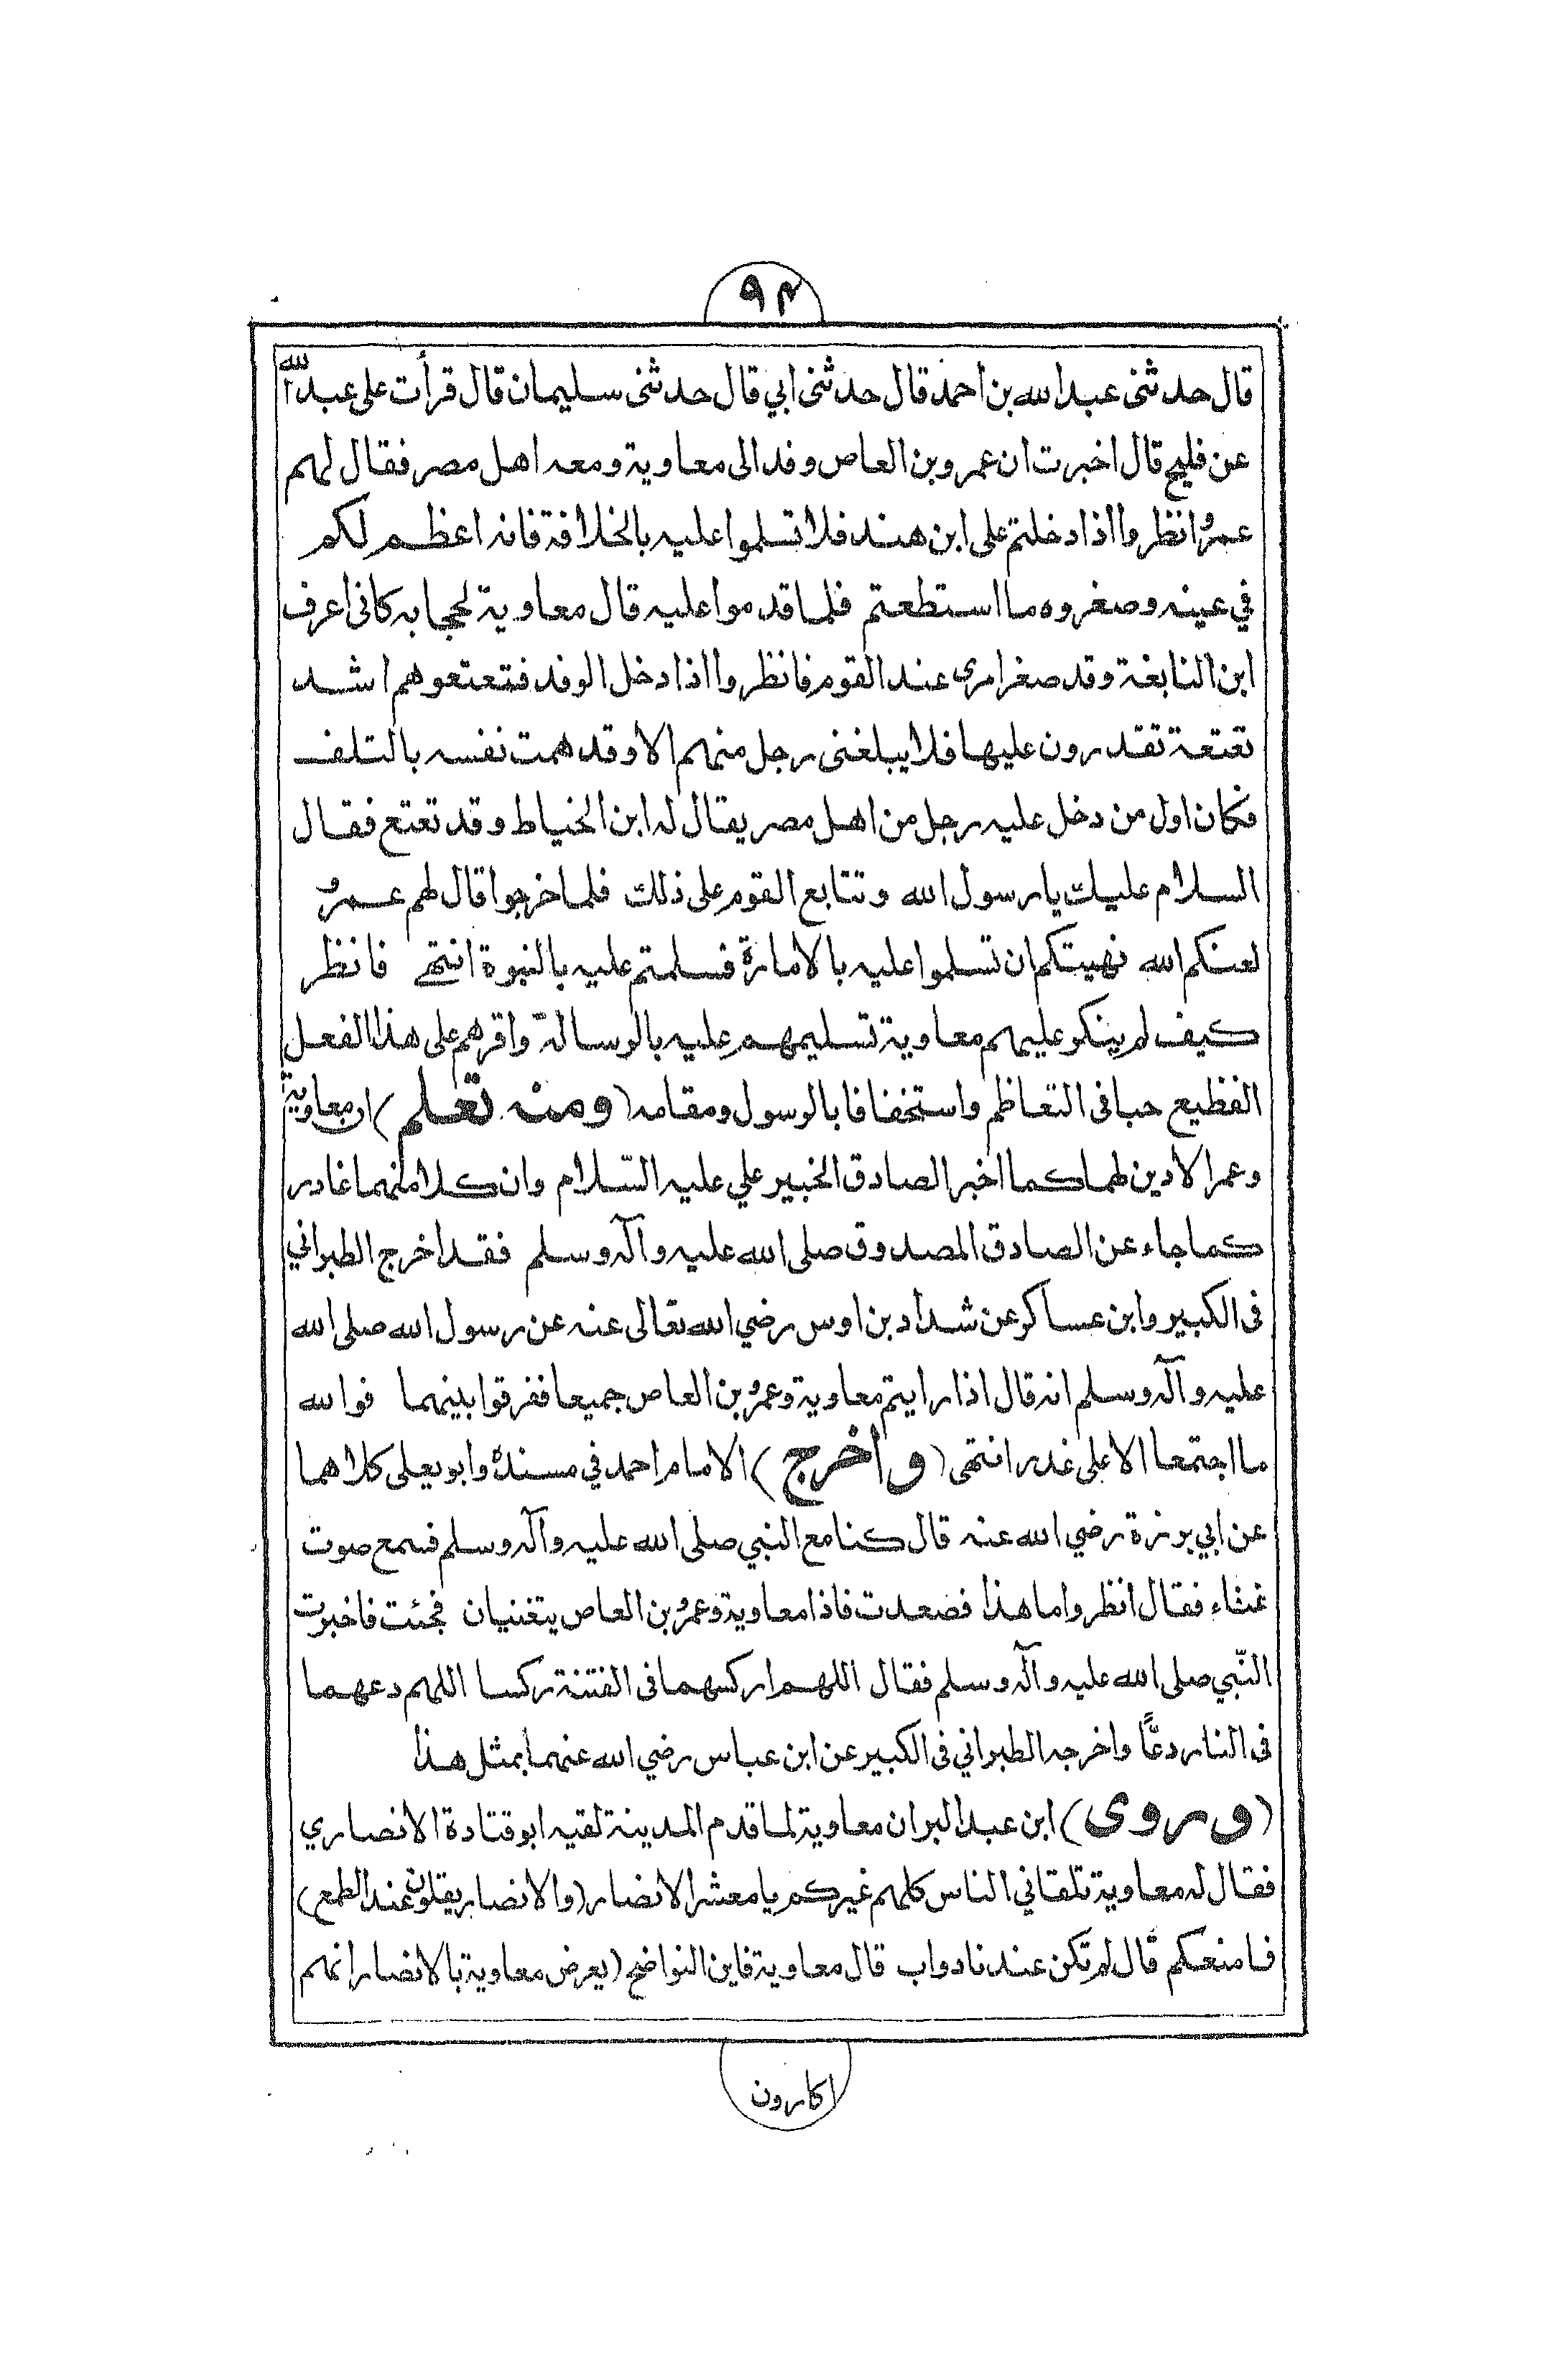 ٩٤
قال حدثنى عبد الله بن احمد قال حدثنى ابي قال حدثنى سليمان قال قرأت على عبد الله
عن فليح قال اخبرت ان عمرو بن العاص وفد الى معاوية ومعه اهل مصر فقال لهم
عمرو انظروا اذا دخلتم على ابن هند فلا تسلموا عليه بالخلافة فانه اعظم لكم
في عينه وصغروه ما استطعتم فلما قدموا عليه قال معاوية لحجابه كانى اعرف
ابن النابغة وقد صغر امرى عند القوم فانظروا اذا دخل الوفد فتعتعوهم اشد
تعتعة تقدرون عليها فلا يبلغنى رجل منهم الا وقد همت نفسه بالتلف
فكان اول من دخل عليه رجل من اهل مصر يقال له ابن الخياط وقد تعتع فقال
السلام عليك يا رسول الله وتتابع القوم على ذلك فلما خرجوا قال لهم عمرو
لعنكم الله نهيتكم ان تسلموا عليه بالامارة فسلمتم عليه بالنبوة انتهى فانظر
كيف لم ينكر عليهم معاوية تسليمهم عليه بالرسالة واقرهم على هذا الفعل
الفظيع حبا فى التعاظم واستخفافا بالرسول ومقامه (ومنه تعلم) ان معاوية
وعمر الا دين لهما كما اخبر الصادق الخبير علي عليه السّلام وان كلا منهما غادر
كما جاء عن الصادق المصدوق صلى الله عليه وآله وسلم فقد اخرج الطبراني
فى الكبير وابن عساكر عن شداد بن اوس رضي الله تعالى عنه عن رسول الله صلى الله
عليه وآله وسلم انه قال اذا رايتم معاوية وعمرو بن العاص جميعا ففرقوا بينهما فوالله
ما اجتمعا الا على غدر انتهى (واخرج) الامام احمد في مسنده وابو يعلى كلاهما
عن ابي برزة رضي الله عنه قال كنا مع النبي صلى الله عليه وآله وسلم فسمع صوت
غناء فقال انظروا ما هذا فصعدت فاذا معاوية وعمرو بن العاص يتغنيان فجئت فاخبرت
النّبي صلى الله عليه وآله وسلم فقال اللهم اركسهما فى الفتنة ركسا اللهم دعهما
فى النار دعًّا واخرجه الطبراني فى الكبير عن ابن عباس رضي الله عنهما بمثل هذا
(وروى) ابن عبد البر ان معاوية لما قدم المدينة لقيه ابو قتادة الانصاري
فقال له معاوية تلقاني الناس كلهم غيركم يا معشر الانصار (والانصار يقلون عند الطمع)
فما منعكم قال لم تكن عندنا دواب قال معاوية فاين النواضح (يعرض معاوية بالانصار انهم
اكارون